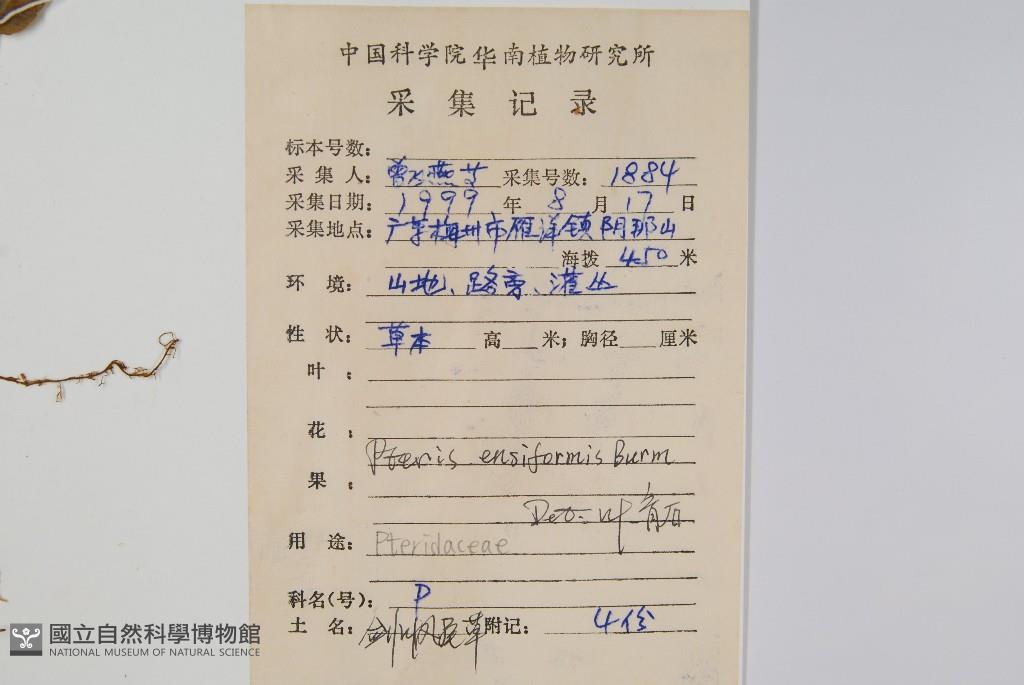 中国科学院华南植物研究所
采集记录
标本号数：
采集人：曾燕 采集号数：1884
采集日期：1999年8月17日
采集地点：广东梅州市雁洋镇阴那山
海拨 450 米
环境：山地、路旁、灌丛
性状：草本 高 米；胸径 厘米
叶：
花：
Pteris ensiformis Burm
果：
Det. 叶
用途：Pteridaceae
科名(号)：P
土名：剑叶凤尾草 附记：4份
國立自然科學博物館
NATIONAL MUSEUM OF NATURAL SCIENCE